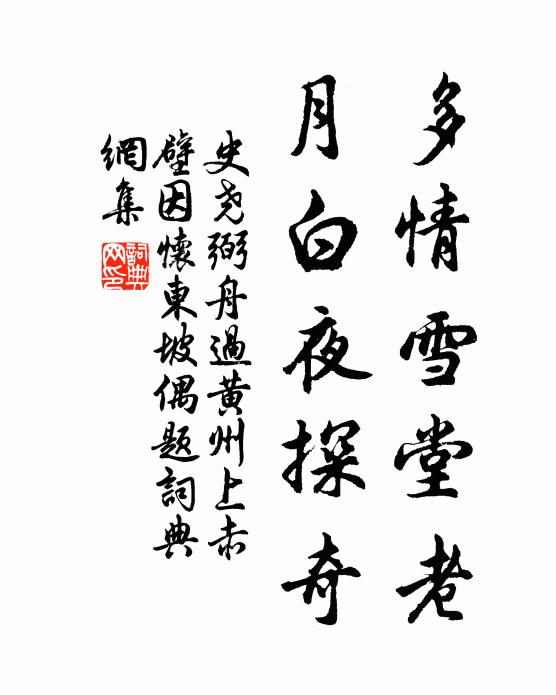 多情雪堂老
月白夜探奇
史尧弼舟過黄州上赤
壁因懷東坡偶题詞典
網集
詞典
网印